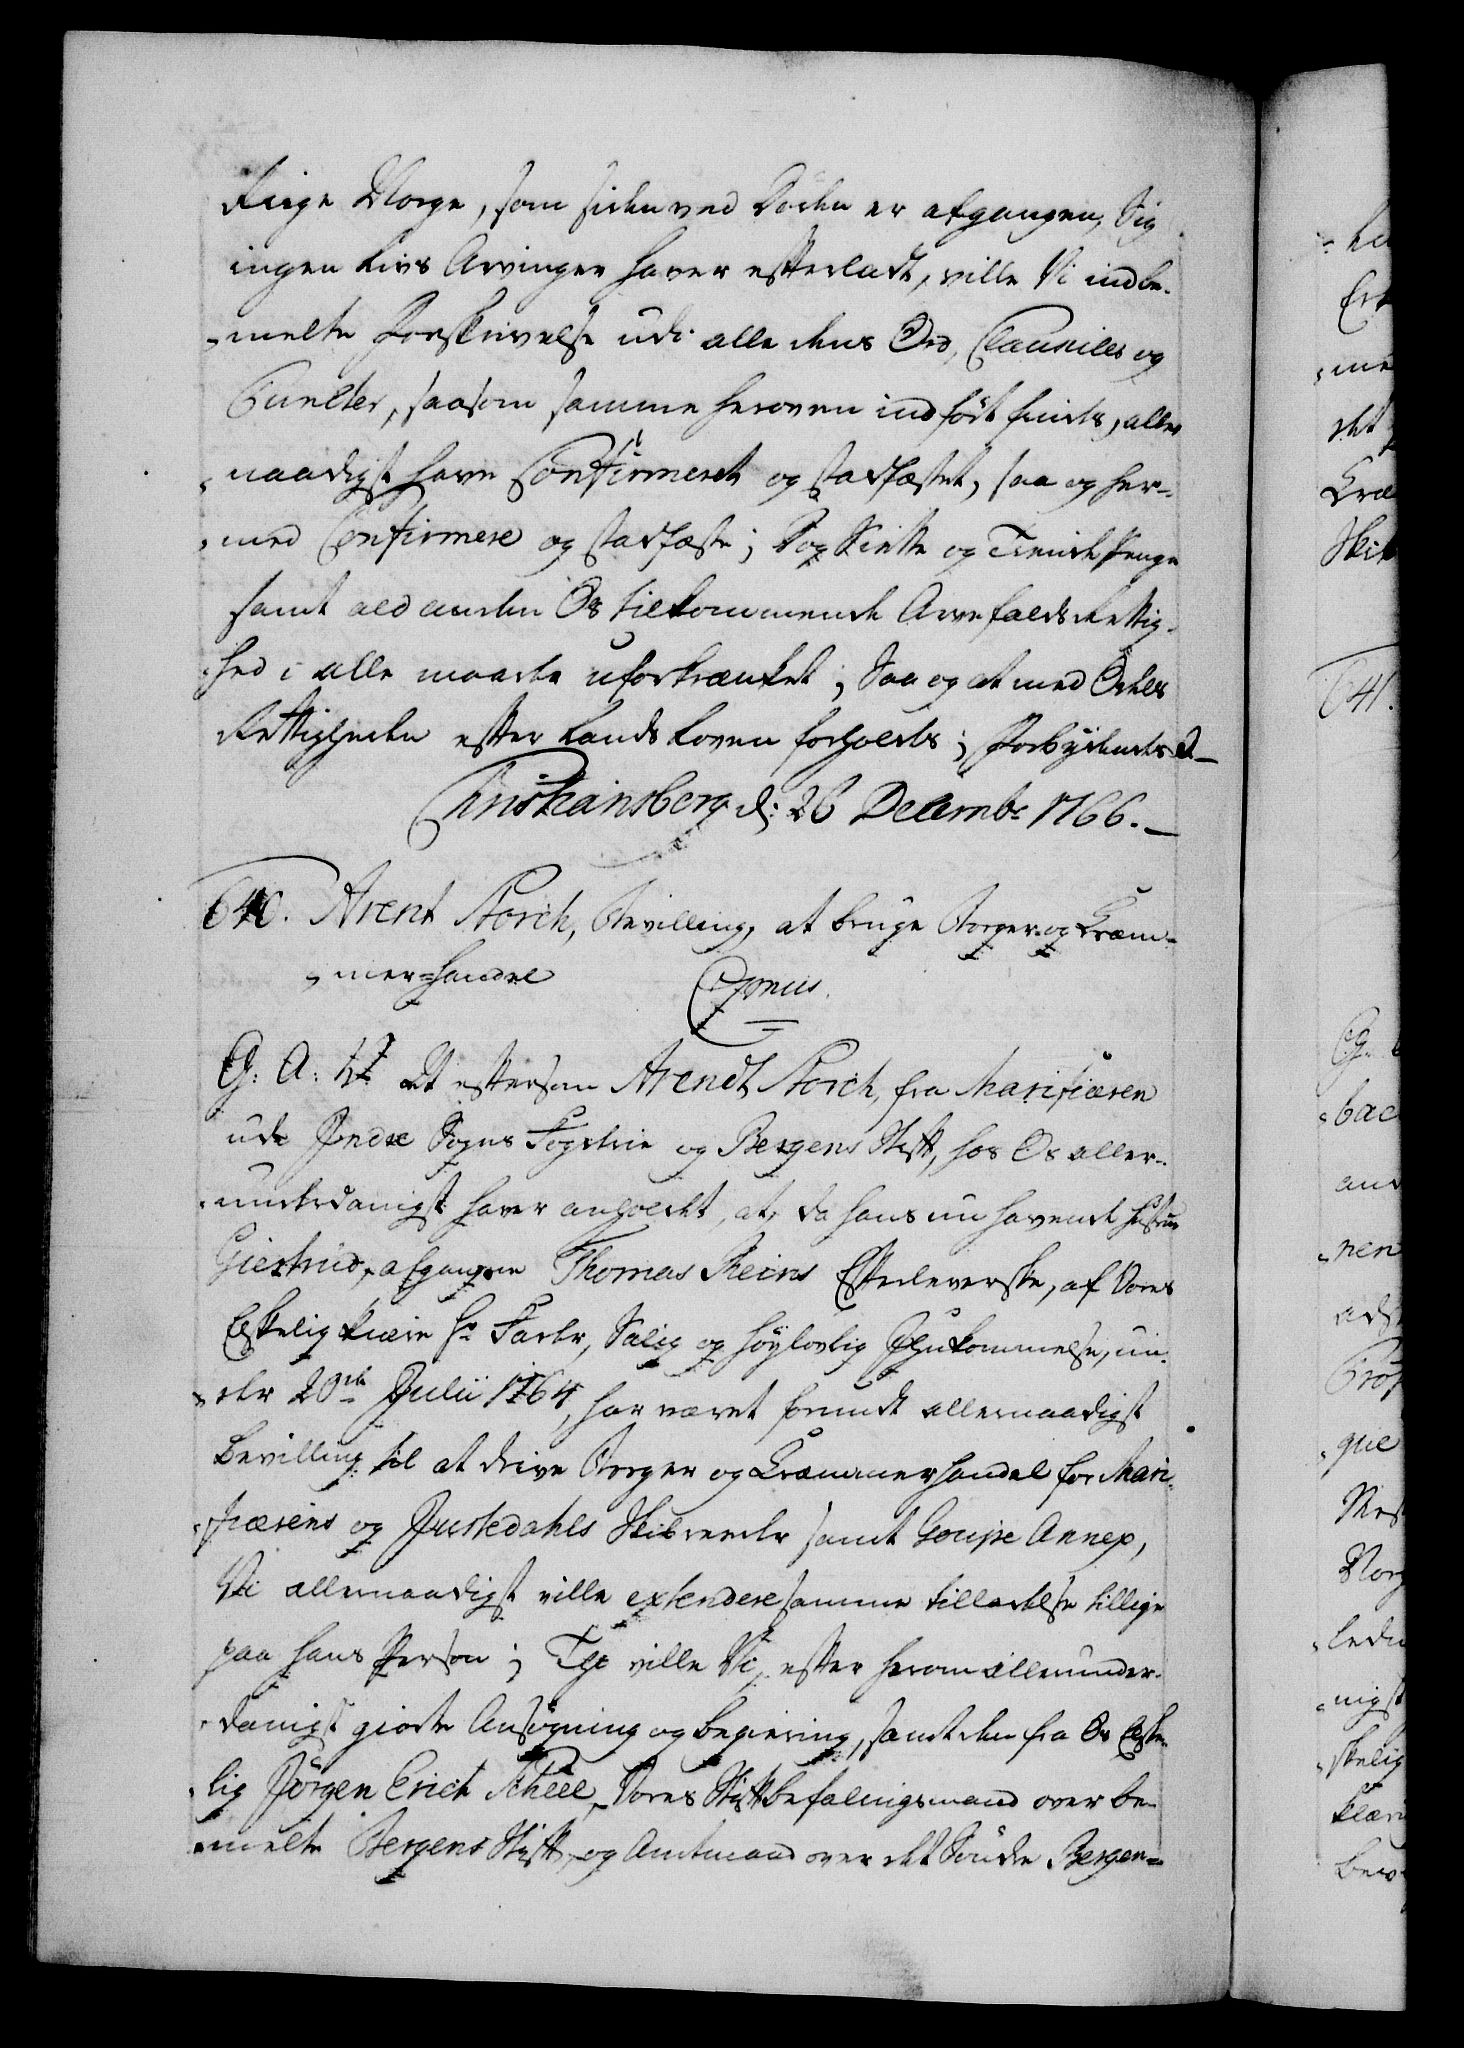 Rige Norge, som siden ved Döden er afgangen, Sig
ingen Livs Arvinger haver efterladt, ville Vi indbe-
melte Forskrivelse udi alle dens Ord, Clausuler og
Puncter, saasom samme heroven indfört findes, aller
naadigst have Confirmeret og stadfæstet, saa og her-
med Confirmere og stadfæste; Dog Siette og Tiende Penge
samt ald anden Os tilkommende Arvefalds Rettig-
hed i alle maader uforkrænket; Saa og at med Odels
Rettigheden efter Lands Loven forholdes; Forbydendes
Christiansberg d: 26 Decembr 1766.
640. Arent Storch, Bevilling, at bruge Borger- og Kræm-
mer-Handel
Cymus.
G: A: V: At eftersom Arendt Storch, fra Marifiæren
udi Indre Sogns Fogderie og Bergens Stift, hos Os aller-
underdanigst haver anholdet, at, da hans nu havende Hustrue
Giertrud, afgangne Thomas Steins Efterleverske, af Vores
Elskelig kiære Hr Fader, Salig og höylovlig Ihukommelse, un-
der 20de Julii 1764, har været forundt allernaadigst
Bevilling til at drive Borger og Kræmmerhandel for Mari-
fiærens og Justedahls Skibreeder samt Goupe Annex,
Vi allernaadigst ville extendere samme tilladelse tillige
paa hans Person; Tha ville Vi, efter herom allerunder-
danigst giorte Ansögning og begiering, samt den fra Os Elske-
lig Jörgen Erich Scheel, Vores Stiftbefalingsmand over be-
melte Bergens Stift, og Amtmand over det Söndre Bergen-
641.